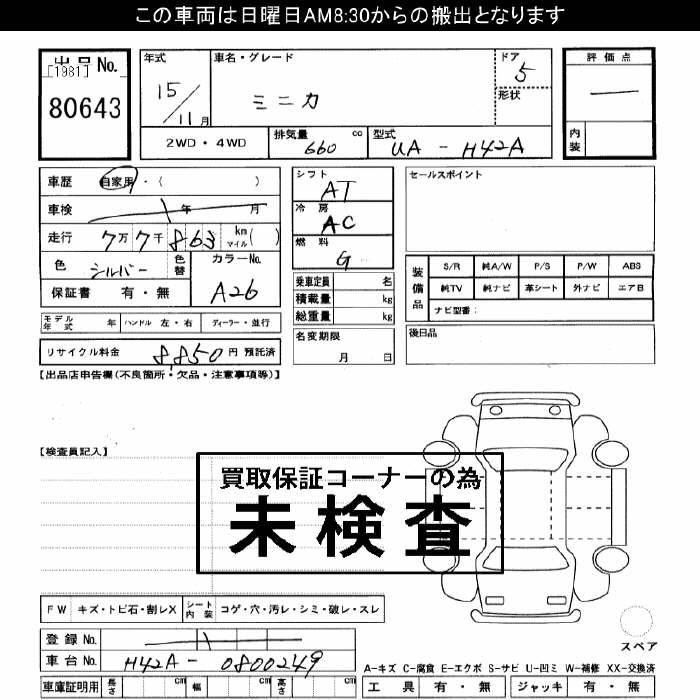 この車両は日曜日AM8:30からの搬出となります
出品No.
[1981]
80643
年式
15/11月
車名・グレード
ミニカ
ドア
5
形状
2WD・4WD
排気量
660
cc
型式
UA-H42A
評価点
—
内装
車歴
自家用・( )
車検
年 月
走行
7万7千863
km
マイル
( )
色
シルバー
色替
カラーNo.
A26
保証書 有・無
モデル年式 年
ハンドル 左・右
ディーラー・並行
リサイクル料金
8,850円 預託済
シフト
AT
冷房
AC
燃料
G
乗車定員 名
積載量 kg
総重量 kg
名変期限
月 日
セールスポイント
装備品
S/R 純A/W P/S P/W ABS
純TV 純ナビ 革シート 外ナビ エアB
ナビ型番:
後日品
【出品店申告欄(不良箇所・欠品・注意事項等)】
【検査員記入】
買取保証コーナーの為
未検査
FW
キズ・トビ石・割レX
シート内装
コゲ・穴・汚レ・シミ・破レ・スレ
登録No.
車台No.
H42A-0800249
車庫証明用
長さ cm
幅 cm
高さ cm
スペア
A-キズ C-腐食 E-エクボ S-サビ U-凹ミ W-補修 XX-交換済
工具 有・無
ジャッキ 有・無